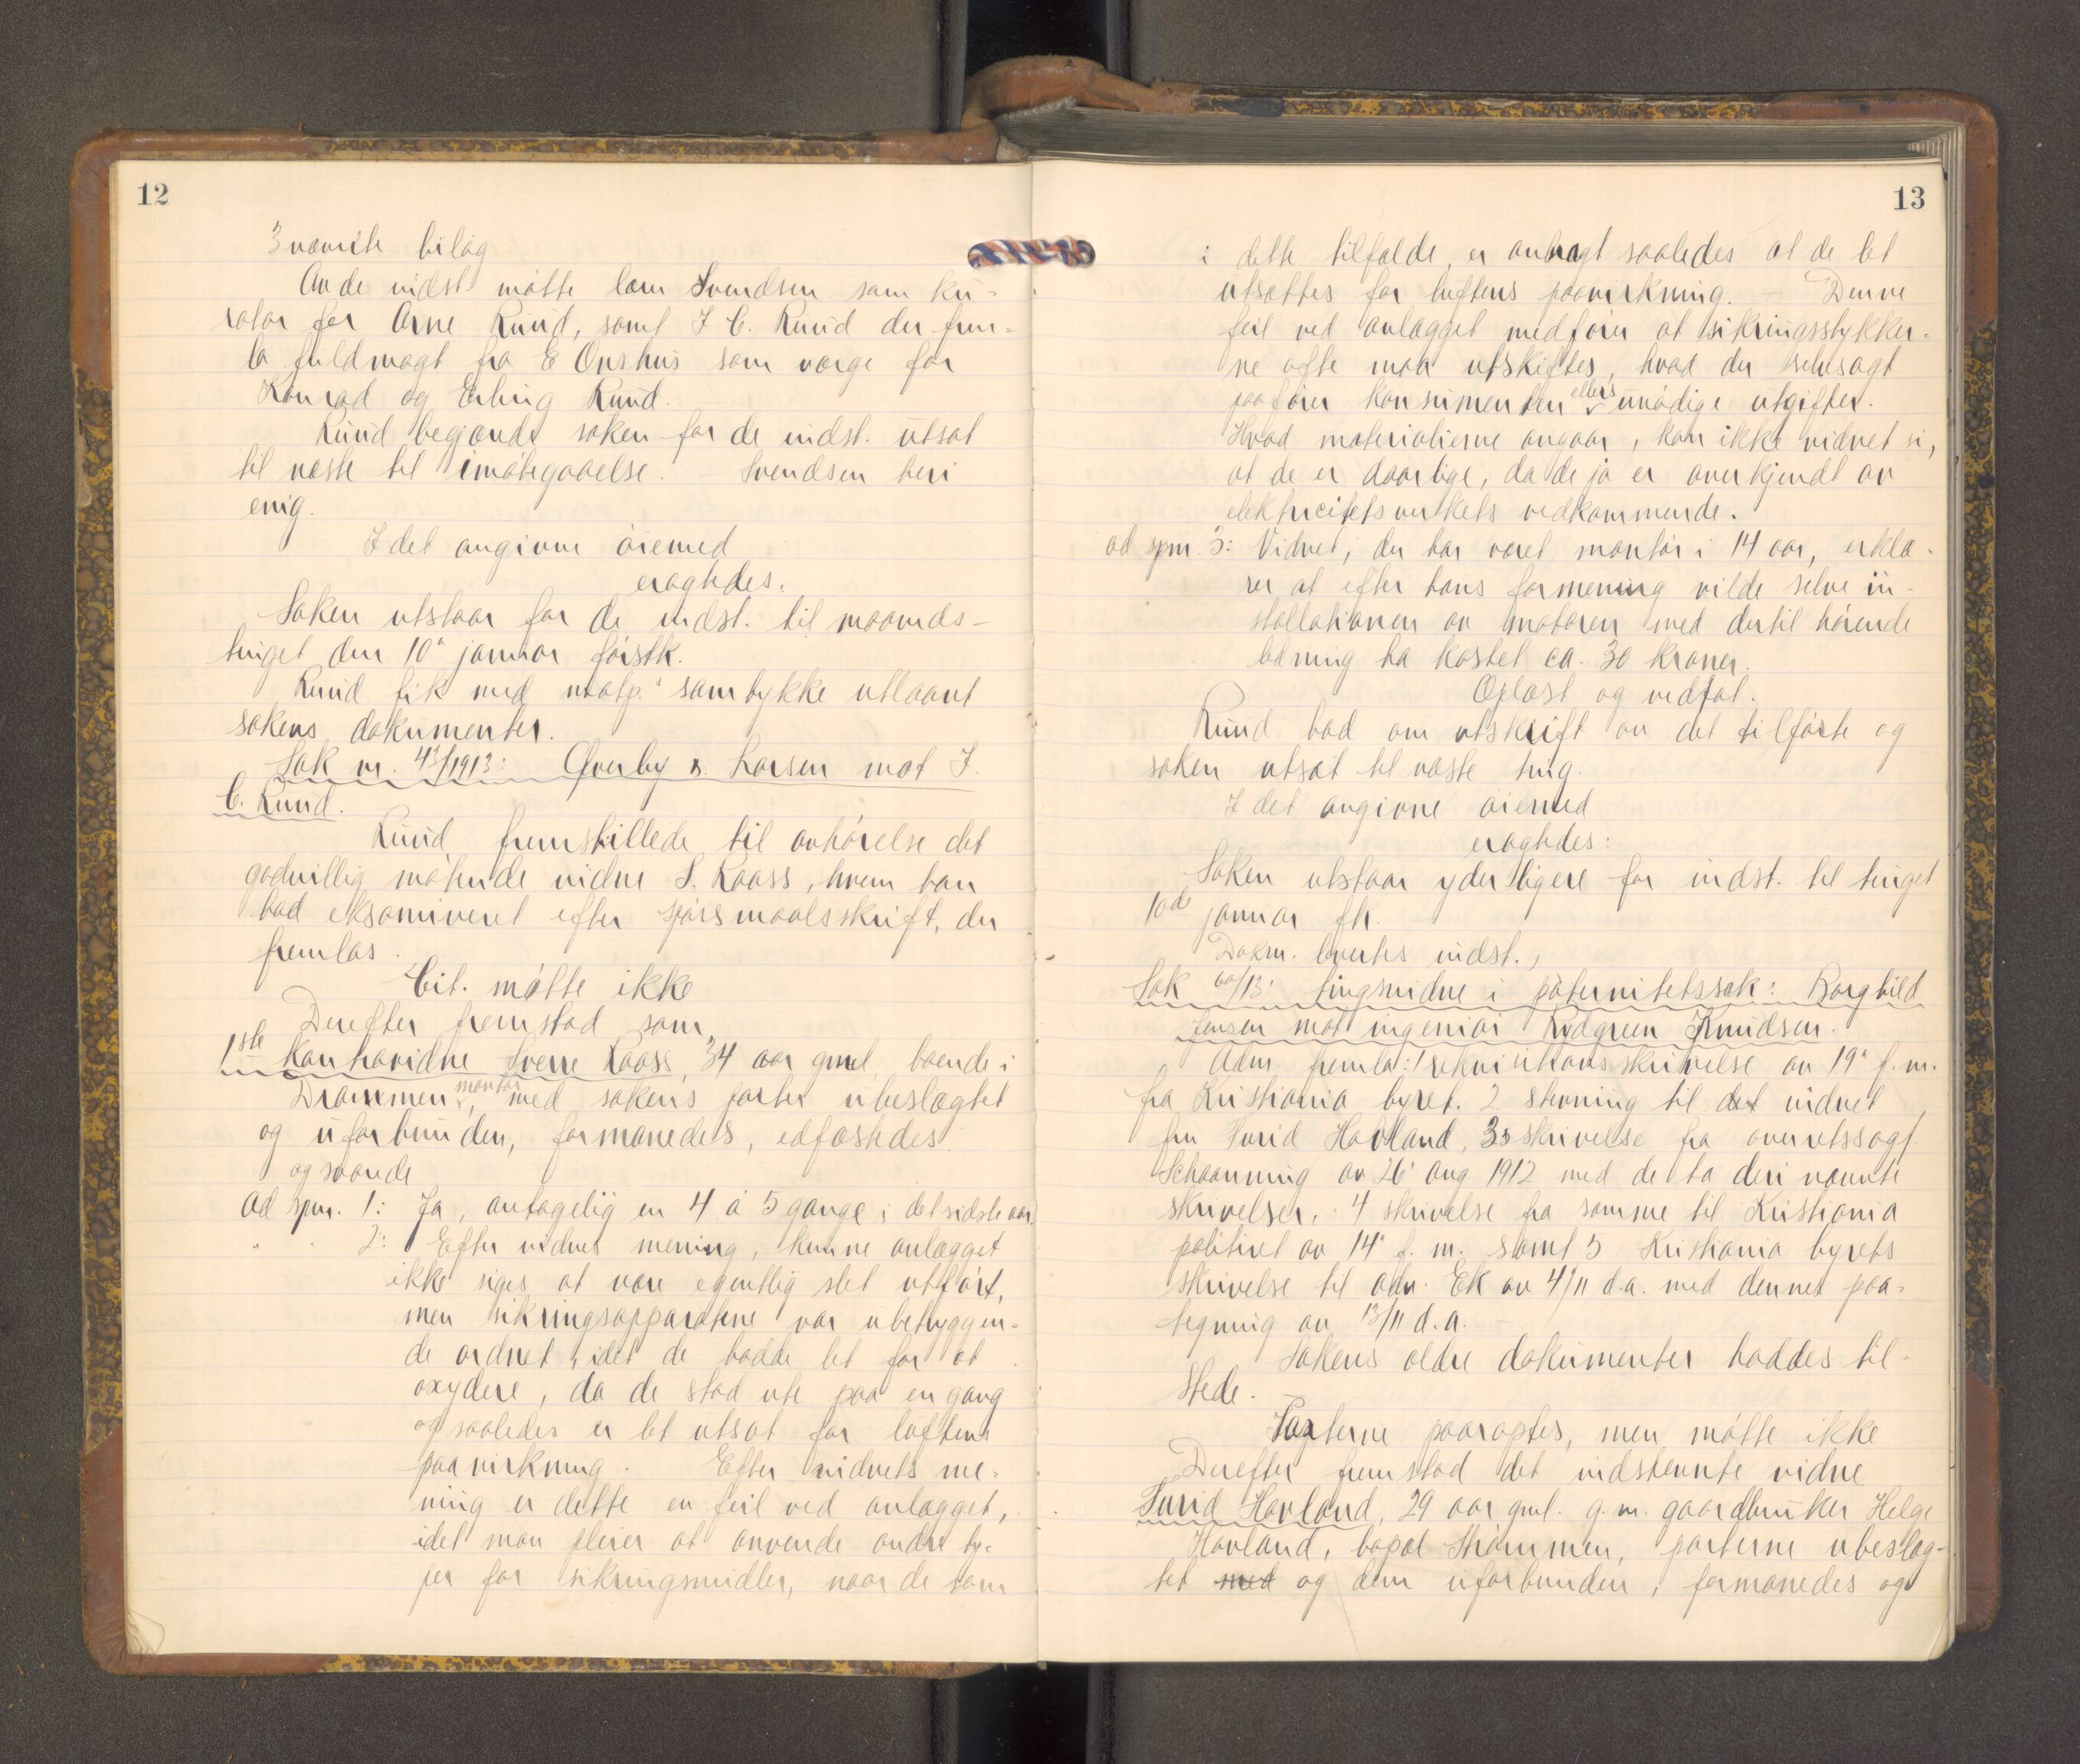 12
3 nævnte bilag
Av de indst. møtte lærer Svendsen som ku-
rator for Arne Ruud, samt J C. Ruud der frem-
la fuldmagt fra E Onshus som verge for
Konrad og Erling Ruud.
Ruud begjærede saken for de indst. utsat
til næste til imøtegaaelse. – Svendsen heri
enig.
I det angivne øiemed
eragtedes.
Saken utstaar for de indst. til maaneds-
tinget den 10' januar førstk.
Ruud fik med motp.s samtykke utlaant
sakens dokumenter.
Sak nr. 43/1913: Øverby & Larsen mot J.
C. Ruud.
Ruud fremstillede til avhørelse det
godvillig møtende vidne S. Raass, hvem han
bad eksamineret efter spørsmaalsskrift, der
fremlæs.
Cit. møtte ikke
Derefter fremstod som
1ste Kontravidne Sverre Raass, 34 aar gml, boende i
Drammen, montør, med sakens parter ubeslægtet
og uforbunden, formanedes, edfæstedes
og svarede
Ad spm. 1: Ja, antagelig en 4 à 5 gange i det sidste aar
" " 2: Efter vidnets mening, kunne anlægget
ikke siges at være egentlig slet utført,
men sikringsapparatene var ubetryggen-
de ordnet, idet de hadde let for at
oxydere, da de stod ute paa en gang
og saaledes er let utsat for luftens
paavirkning. Efter vidnets me-
ning er dette en feil ved anlægget,
idet man pleier at anvende andre ty-
per for sikringsmidler, naar de som
13
i dette tilfælde, er anbragt saaledes at de let
utsættes for luftens paavirkning. – Denne
feil ved anlægget medfører at sikringsstykker-
ne ofte maa utskiftes, hvad der selvsagt
paafører konsumenten ellers unødige utgifter.
Hvad materialierne angaar, kan ikke vidnet si,
at de er daarlige, da de jo er anerkjendt av
elektricitetsverkets vedkommende.
ad spm. 3: Vidnet, der har været montør i 14 aar, erklæ-
rer at efter hans formening vilde selve in-
stallationen av motoren med dertil hørende
ledning ha kostet ca. 30 kroner.
Oplæst og vedtat.
Ruud bad om utskrift av det tilførte og
saken utsat til næste ting.
I det angivne øiemed
eragtedes:
Saken utstaar yderligere for indst. til tinget
10de januar fk.
Dokm. levertes indst.
Sak 60/13: tingsvidne i paternitetssak: Borghild
Jensen mot ingeniør Rydgreen Knudsen.
Adm. fremla: 1 rekvisitionsskrivelse av 19' f. m.
fra Kristiania byret. 2 stevning til det vidnet
fru Turid Havland, 3 skrivelse fra overretssagf.
Schaanning av 26' aug 1912 med de to deri nævnte
skrivelser, 4 skrivelse fra samme til Kristiania
politiret av 14' f. m. samt 5 Kristiania byrets
skrivelse til adv. Ek av 4/11 d.a. med dennes paa-
tegning av 13/11 d.a.
Sakens ældre dokumenter haddes til-
stede.
Parterne paaroptes, men møtte ikke
Derefter fremstod det indstevnte vidne
Turid Havland, 29 aar gml. g. m. gaardbruker Helge
Havland, bopæl Strømmen, parterne ubeslæg-
tet med og dem uforbunden, formanedes og